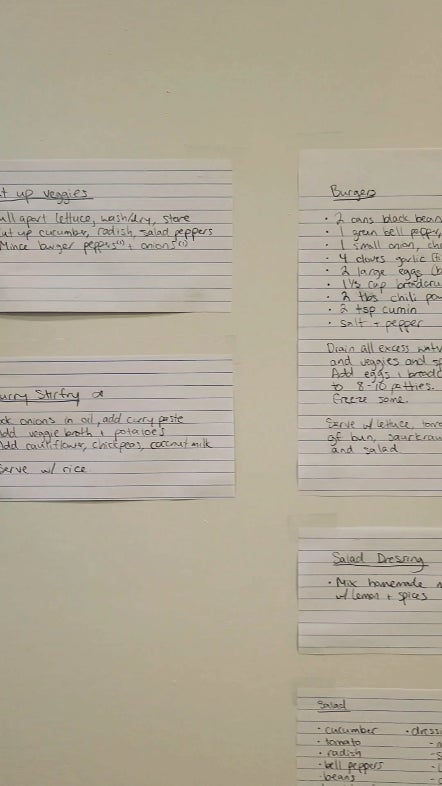 t up veggies
ull apart lettuce, wash/dry, store
ut up cucumber, radish, salad peppers
Mince burger peppers(1) + onions(1)
urry Stirfry
ck onions in oil, add curry paste
dd veggie broth + potatoes
Add cauliflower, chickpeas, coconut milk
Serve w/ rice
Burgers
• 2 cans black bean
• 1 green bell pepper,
• 1 small onion, ch
• 4 cloves garlic
• 2 large eggs
• 1 1/2 cup breadcru
• 2 tbs chili pow
• 2 tsp cumin
• salt + pepper
Drain all excess wat
and veggies and sp
Add eggs + breadc
to 8-10 patties.
Freeze some.
Serve w/ lettuce, tom
of bun, sauerkrau
and salad.
Salad Dressing
• Mix homemade
w/ lemon + spices
Salad
• cucumber
• tomato
• radish
• bell peppers
• beans
• dressi